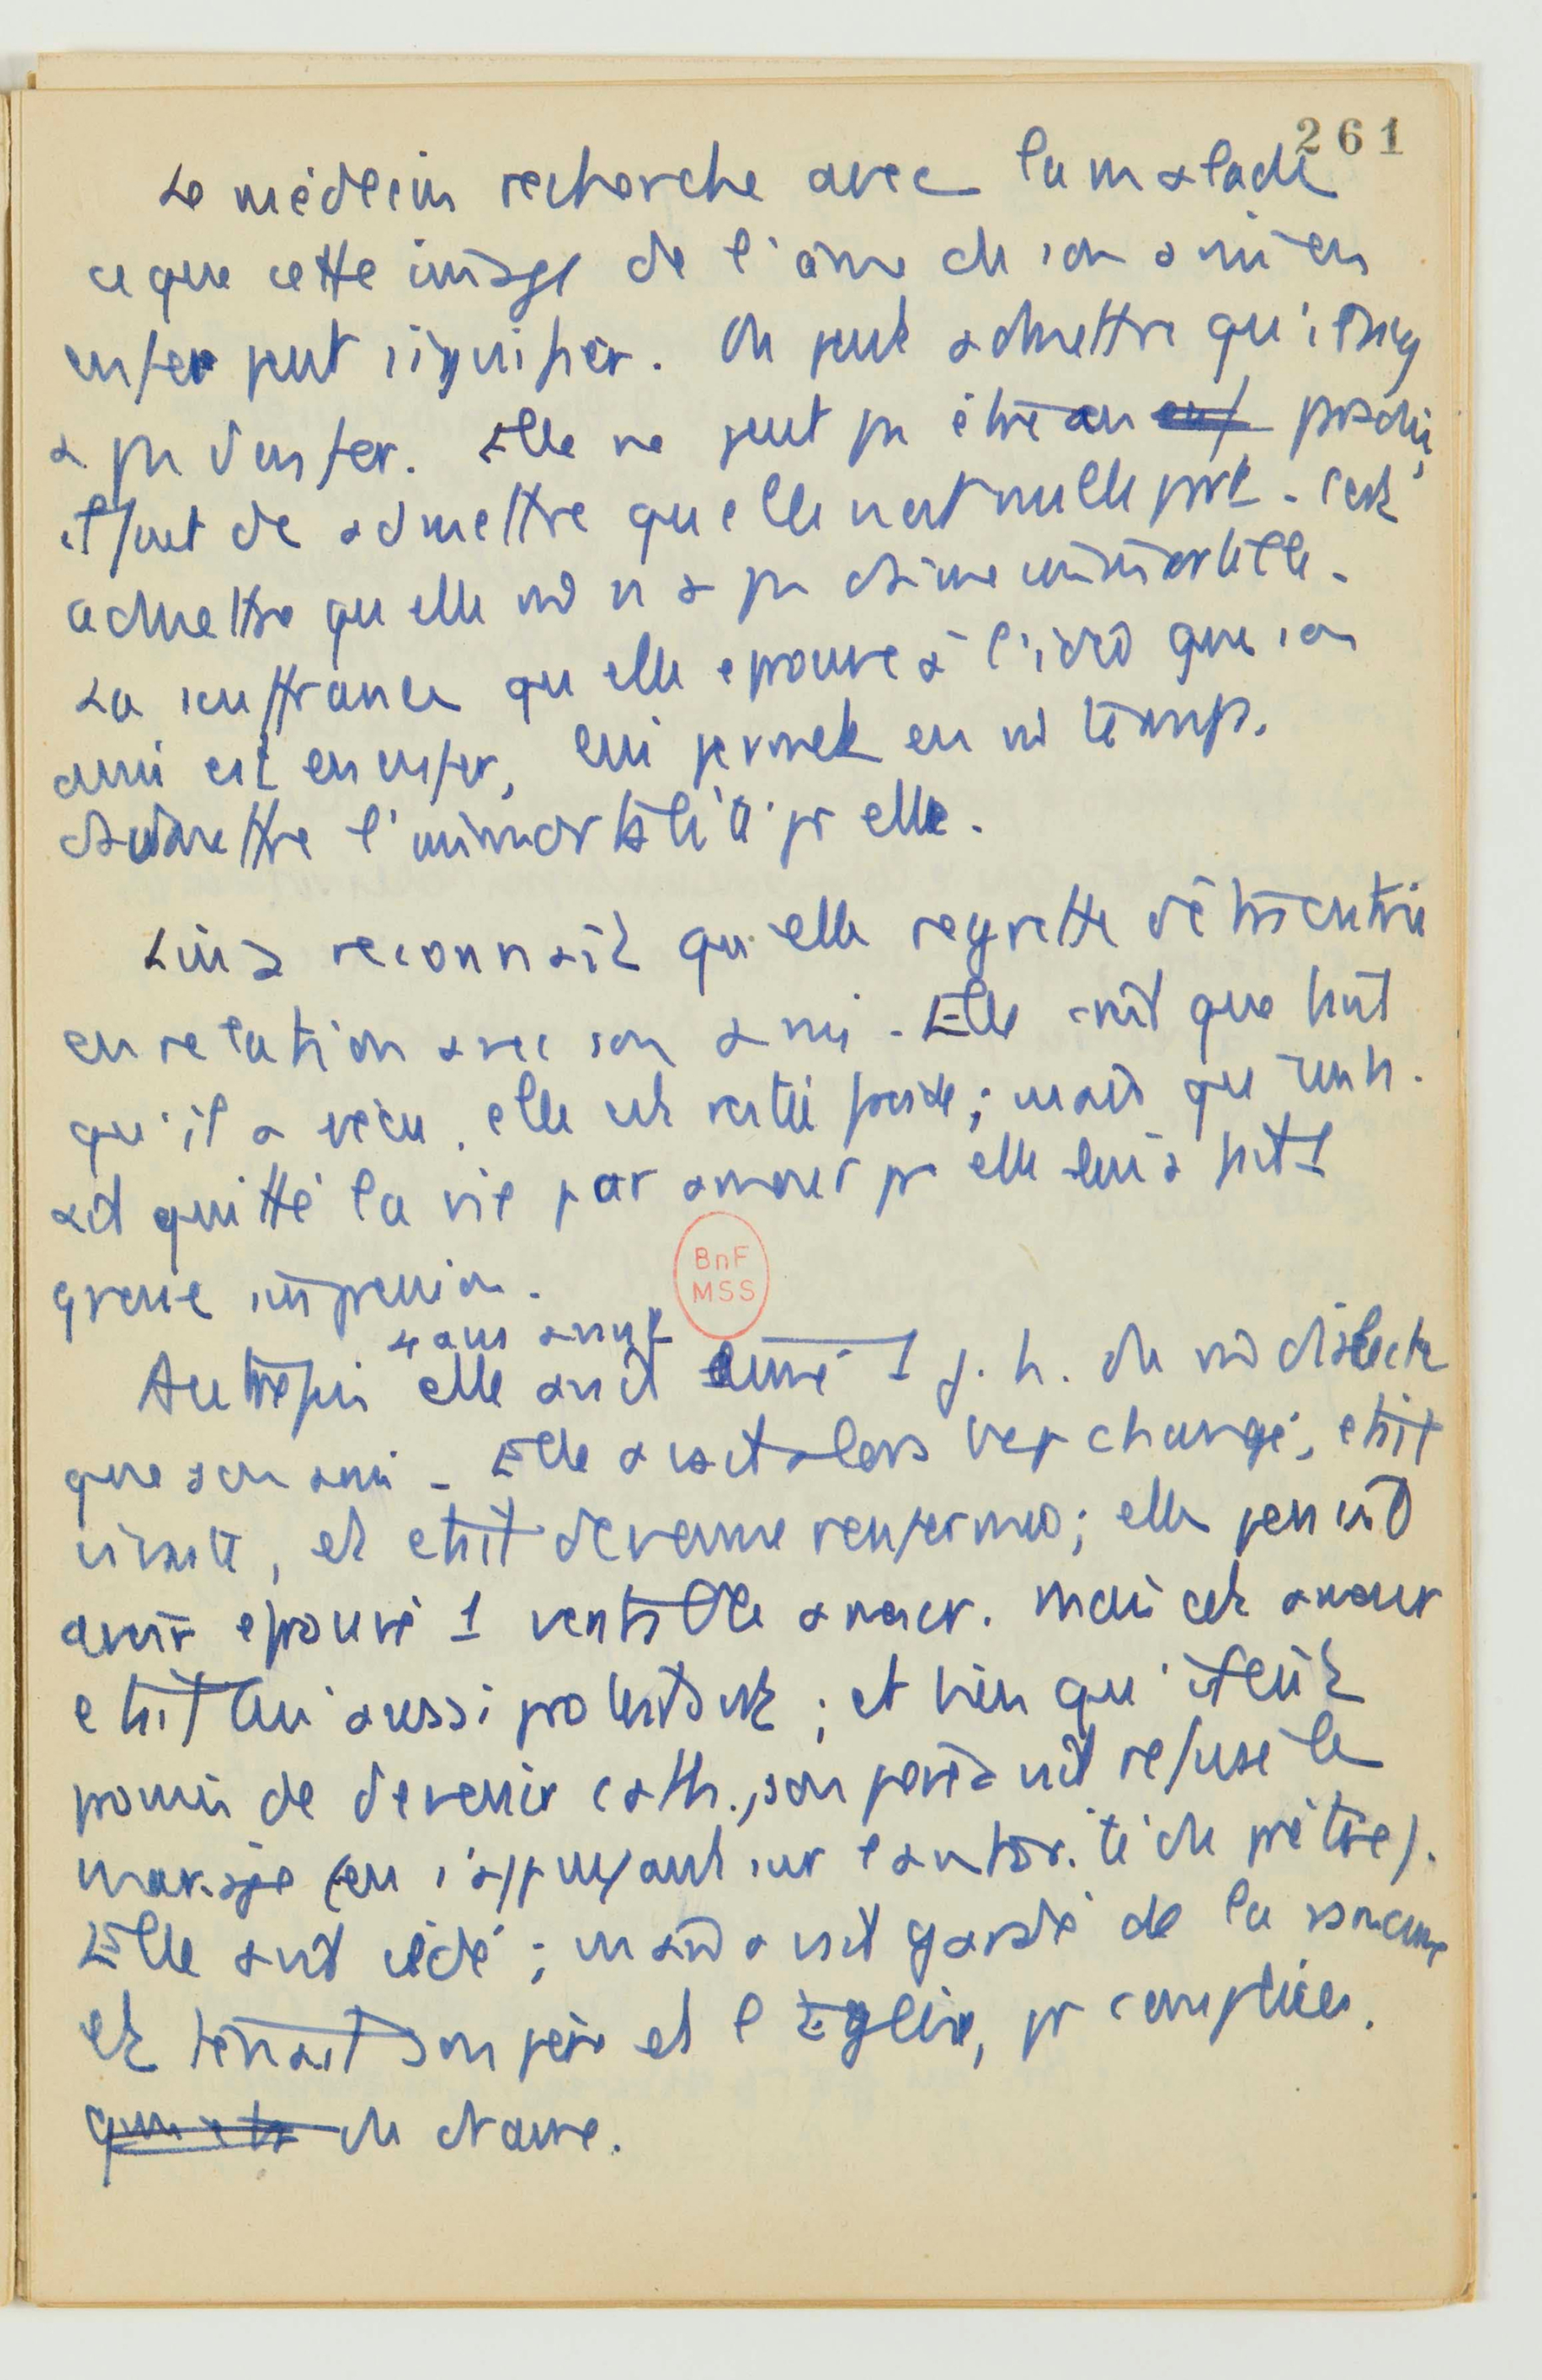 261
Le médecin recherche avec la malade
ce que cette image de l'âme de son ami en
enfer peut signifier. On peut admettre qu'il n'y
a pas d'enfer. Elle ne peut pas être au enf paradis,
il faut de admettre qu'elle n'est nulle part - c'est
admettre qu'elle n'a pas d'âme immortelle.
La souffrance qu'elle éprouve à l'idée que son
ami est en enfer, lui permet en m temps.
d'admettre l'immortalité pr elle.
Lina reconnaît qu'elle regrette d'être entrée
en relation avec son ami - Elle croit que tant
qu'il a vécu, elle est restée froide; mais qu'un h.
ait quitté la vie par amour pr elle lui a fait 1
grosse impression.
BnF
MSS
4 ans avant
Autrefois elle avait aimé 1 j. h. du m dialecte
que son ami - Elle avait alors bcp changé, était
et était devenue renfermée; elle pensait
avoir éprouvé 1 véritable amour. Mais cet amour
était lui aussi protestant; et bien qu'il eût
promis de devenir cath., son père avait refusé le
mariage (en s'appuyant sur l'autorité du prêtre).
Elle avait cédé; mais avait gardé de la rancune
et tenait son père et l'Église, pr complices.
du drame.